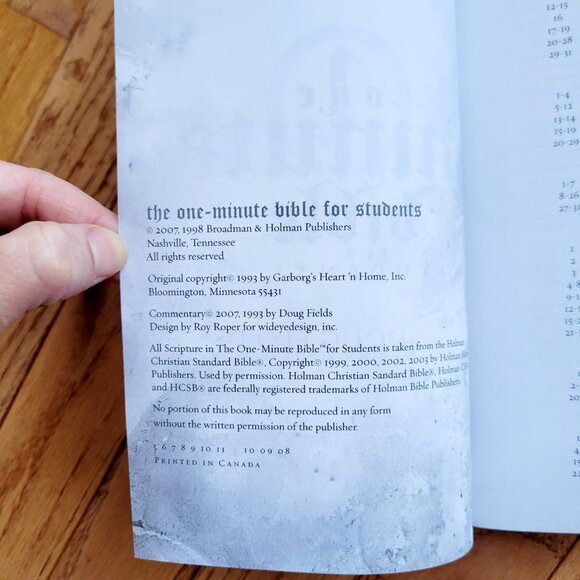 the one-minute bible for students
© 2007, 1998 Broadman & Holman Publishers
Nashville, Tennessee
All rights reserved
Original copyright© 1993 by Garborg's Heart 'n Home, Inc.
Bloomington, Minnesota 55431
Commentary© 2007, 1993 by Doug Fields
Design by Roy Roper for wideyedesign, inc.
All Scripture in The One-Minute Bible™for Students is taken from the Holman
Christian Standard Bible®, Copyright© 1999, 2000, 2002, 2003 by Holman
Publishers. Used by permission. Holman Christian Sandard Bible®, Holman
and HCSB® are federally registered trademarks of Holman Bible Publishers
No portion of this book may be reproduced in any form
without the written permission of the publisher.
5 6 7 8 9 10 11 10 09 08
Printed in Canada
12-15
16
17-19
20-28
29-31
1-4
5-12
13-14
15-19
20-29
1-7
8-26
27-31